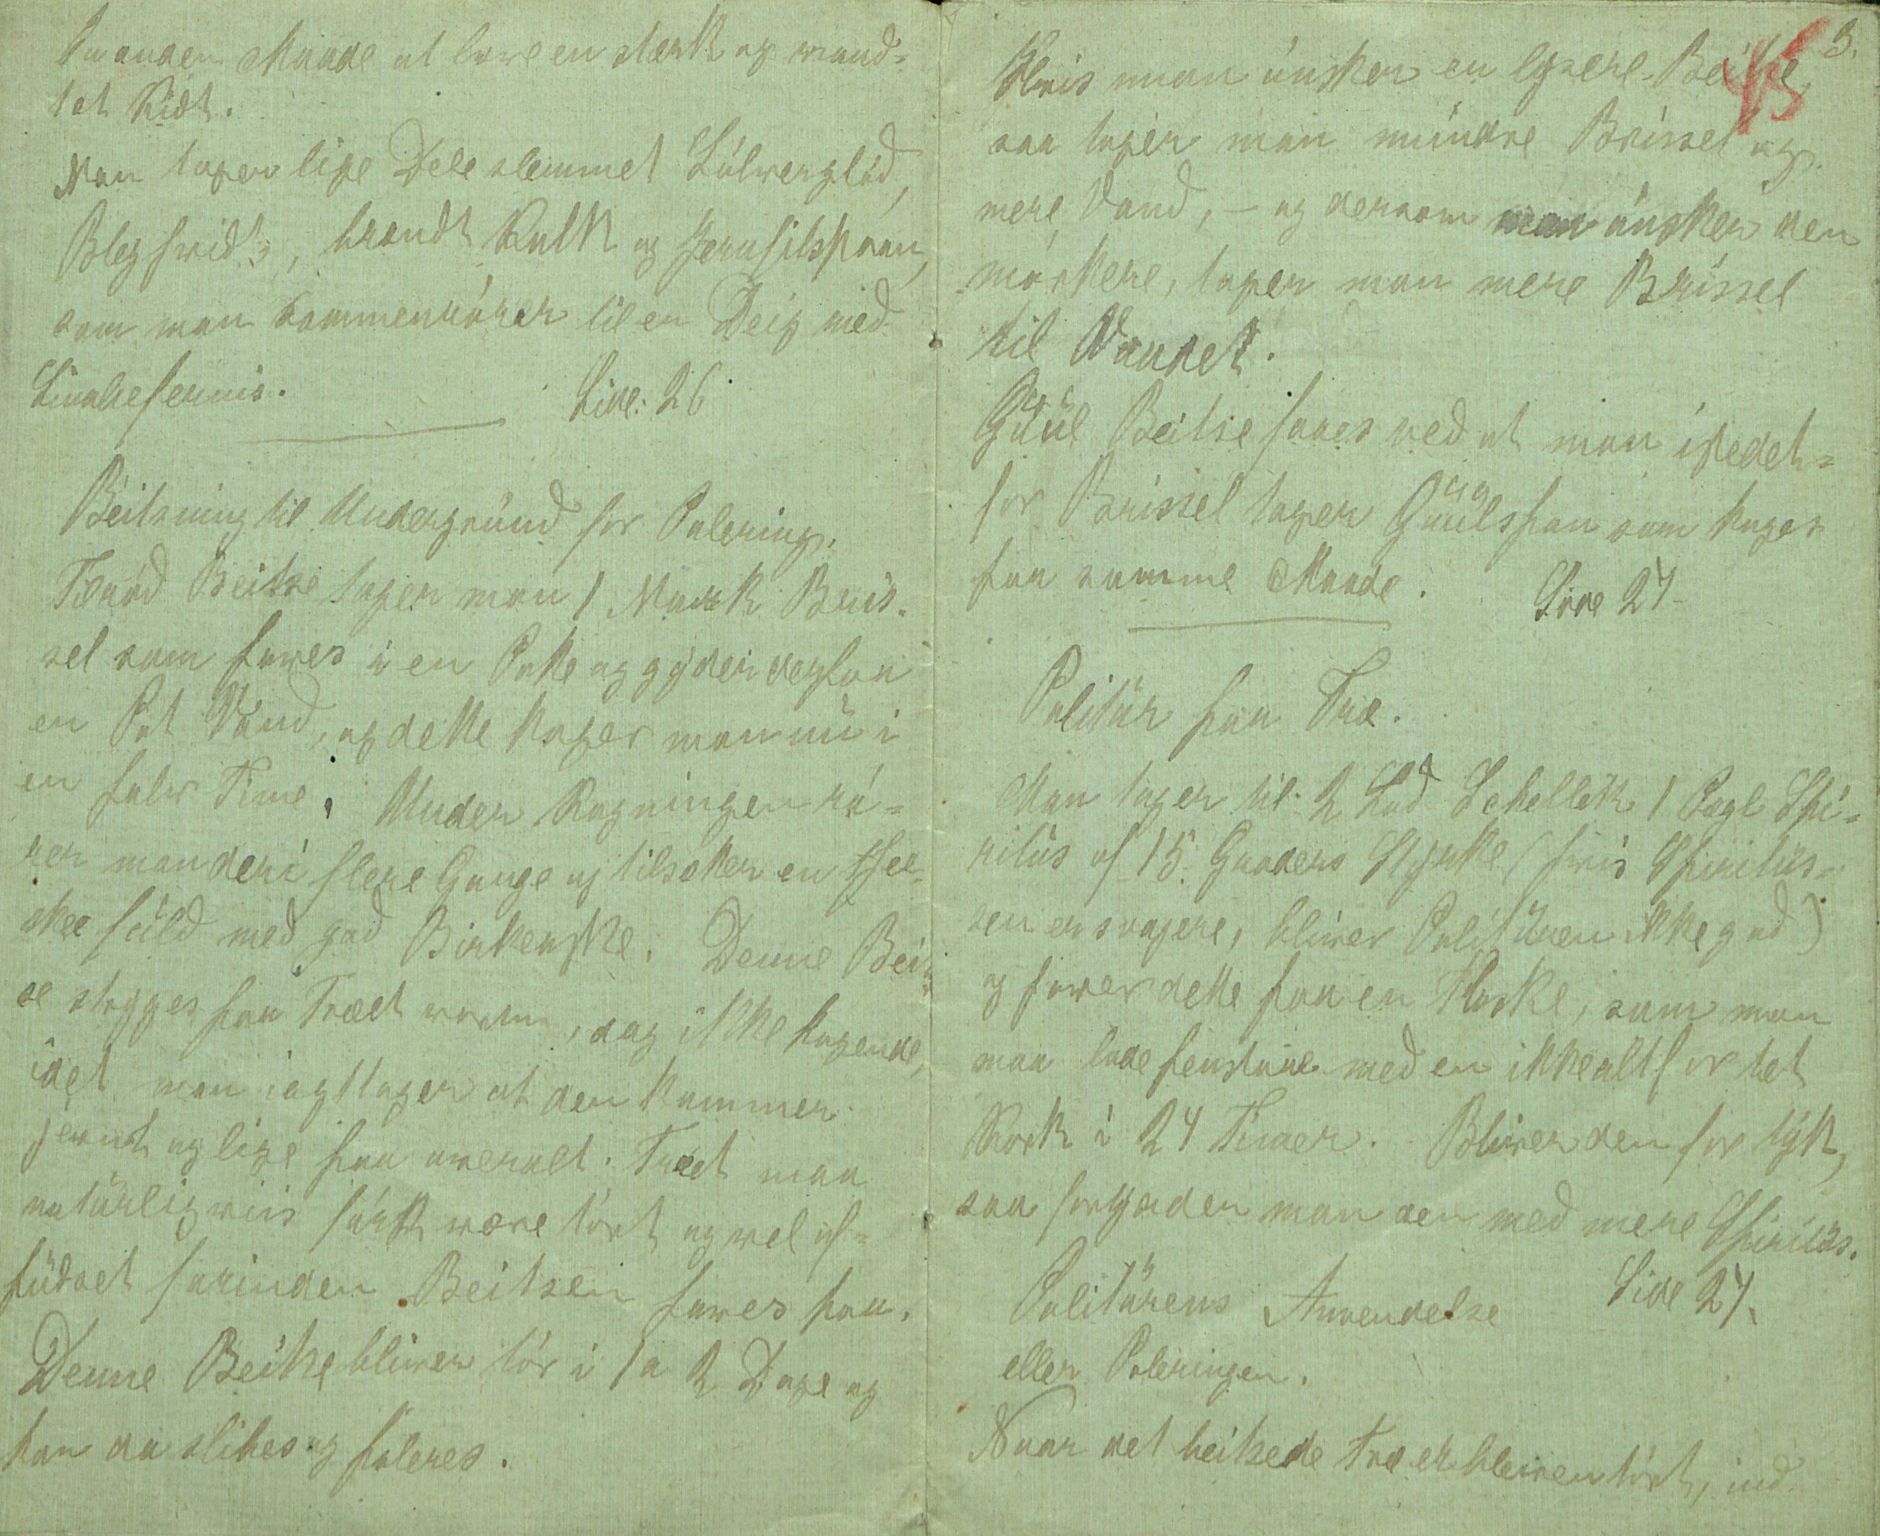 En anden Maade at lave en stærk og vand-
tet Kidt.
Man tager lige Dele slemmet Sölverglöd,
Blyhvidt, brændt Kalk og Fernis
som man sammenrörer til en Deig med
Linoliefernis. Side: 26
Beitsning til Undergrund for Polering.
Til Röd Beitse tager man 1 Mark Bris-
sel som haves i en Potte og gyder derpaa
en Pot Vand, og dette koger man nu i
en halv Time. Under Kogningen rö-
rer man deri flere Gange og tilsetter en Thee-
skee fuld med god Birkeaske. Denne Beit-
se stryges paa Træet varm, dog ikke kogende,
idet man iagttager at den kommer
jevnt og lige paa overalt. Træet maa
naturligviis först være tört og vel af-
pudset forinden Beitsen haves paa.
Denne Beitse bliver tör i 1 a 2 Dage og
kan da slibes og poleres.
3.
45
Hvis man önsker en lysere Beitse,
saa tager man mindre Brissel og
mere Vand, – og dersom man önsker den
mörkere, tager man mere Brissel
til Vandet.
Guul Beitse faaes ved at man istedet-
for Brissel tager Guulspaan som koges
paa samme Maade. Side 27
Politür paa Træ.
Man tager til 2 Lod Schellak 1 Pægl Spi-
ritüs af 15 Graders Styrke (hvis Spiritüs-
sen er svagere, bliver Politüren ikke god)
og haver dette paa en Flaske, som man
maa lade henstaae med en ikke altfor tet
Kork i 24 Timer. Bliver den for tyk,
saa fortynder man den med mere Spiritüs.
Side 27.
Politürens Anvendelse
eller Poleringen.
Naar det beitsede Træ er bleven tört, ind-